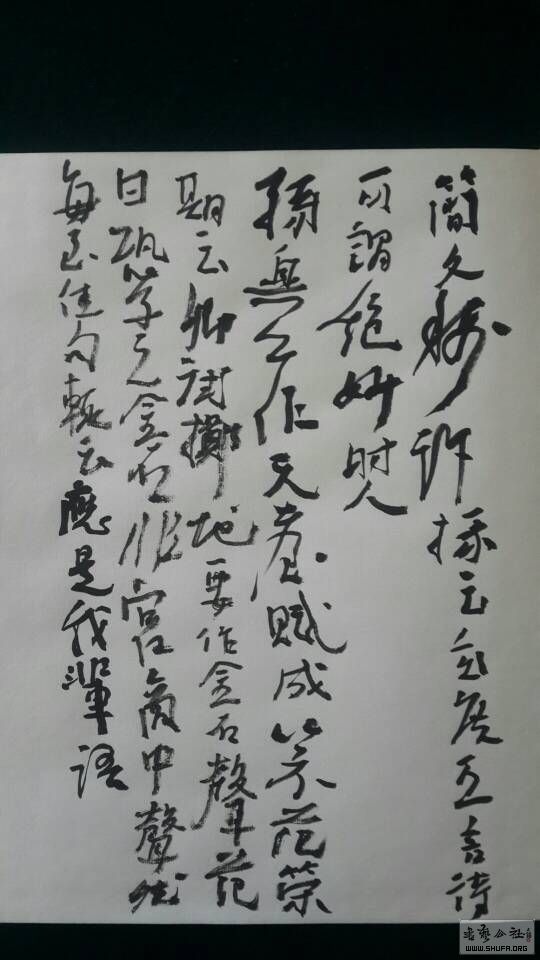 簡文稱許掾云玄度五言詩
可謂絕妙時人
孫興公作天臺賦成以示范榮
期云卿試擲地要作金石聲范
曰恐子之金石非宮商中聲然
每至佳句輒云應是我輩語
书艺公社
WWW.SHUFA.ORG